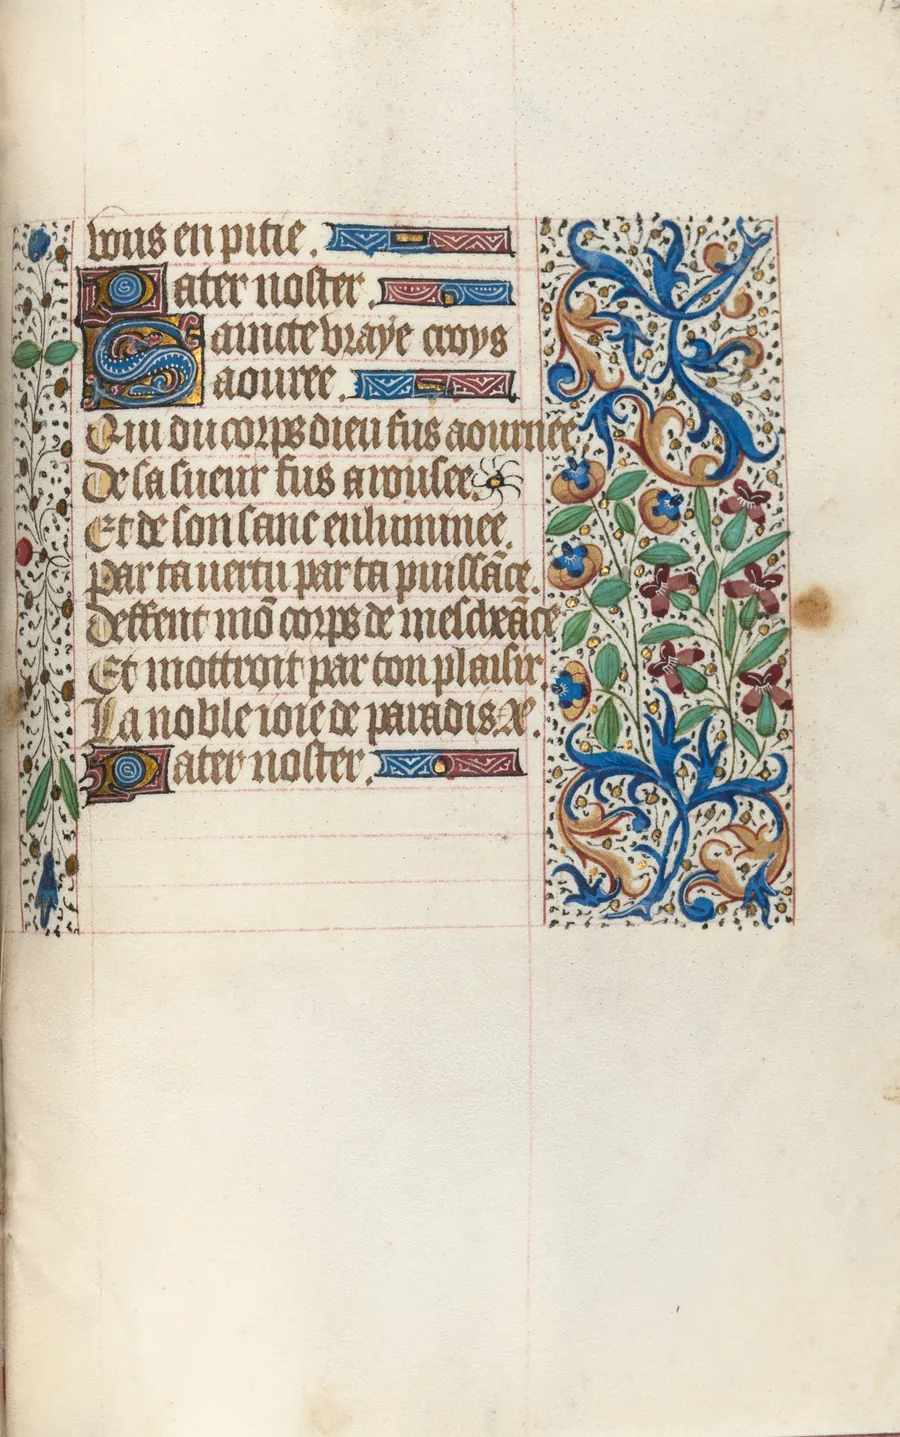 vous en pitie.
Pater noster.
Saincte vraye croys
aouree.
Qui du corps dieu fus aournee
De sa sueur fus arousee.
Et de son sanc enluminee.
Par ta uertu par ta puissāce.
Deffent mō corps de meschāce
Et mottroit par ton plaisir.
La noble ioie de paradis.
Pater noster.